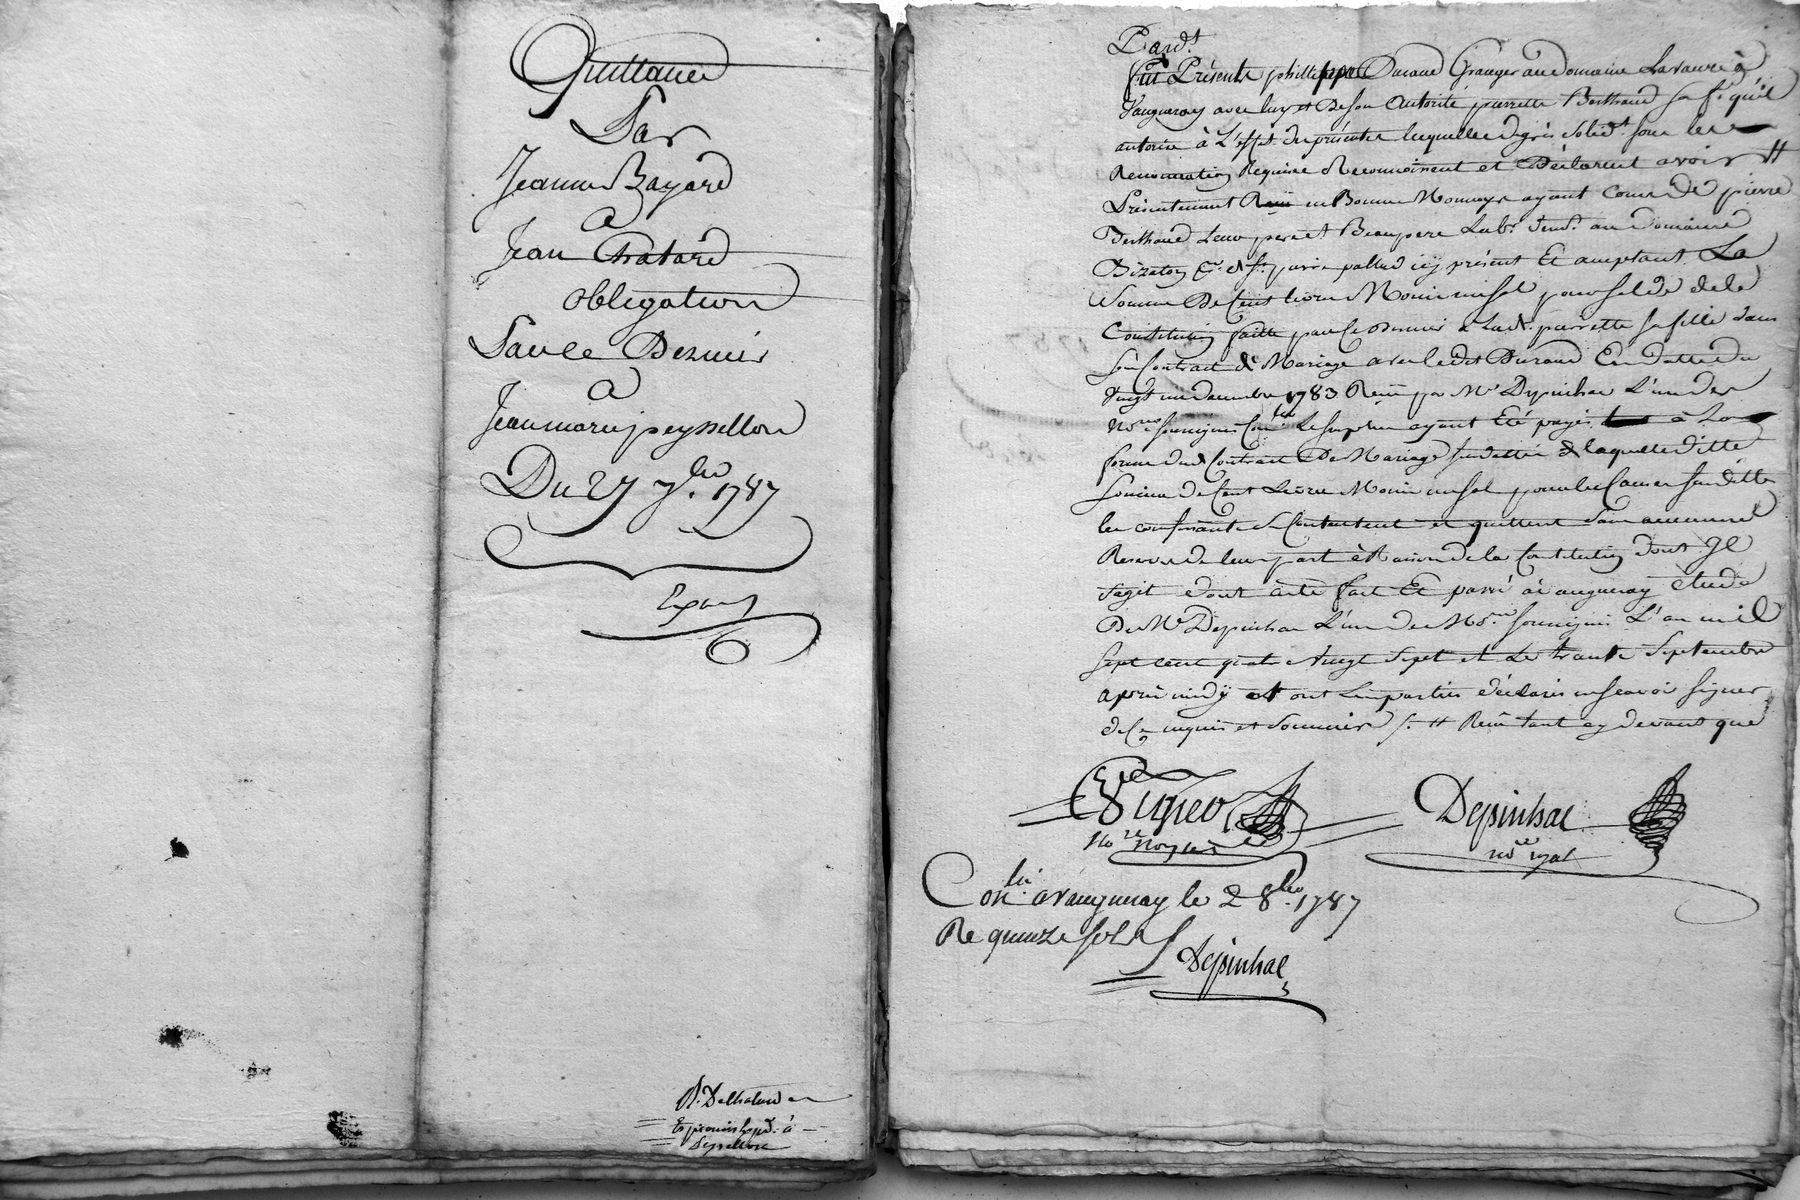 Quittance
Par
Jeanne Bayard
A
Jean Chatard
obligation
Par le Dernier
A
Jeanmarie peyssellon
Du 27 7.bre 1787
Exp
Pard.t
fut Présent philippe Durand Granger au domaine Lavaure à
Vaugneray avec luy et De son Autorité pierrette Berthaud sa f.e qu'il
autorise à L'effet des présentes lesquelles de grés solid.t sous les
Renonciation Requise Reconnoissent et Déclarent avoir #
Présentement Reçu en Bonne Monnoye ayant Cours De pierre
Berthaud Leur pere et Beaupere Lab.r dem.t au domaine
icy présent Et acceptant La
Somme De Cent livres Moins un sol pour solde de la
Constitution faitte par Ce Dernier à Lad. pierrette sa fille dans
son Contrat de Mariage avec ledit Durand En datte du
Vingt un decembre 1783 Reçu par M.e Depinhac L'un des
No.res soussignés Con.lé Le surplus ayant Eté payé à la
forme dud. Contrat De Mariage susdatté de laquelle ditte
somme de Cent Livres Moins un sol pour les Causes susdittes
les confessants se Contentent et quittent sans aucune
Reserve de leur part à Raison de la Constitution dont Il
s'agit dont acte fait Et passé à vaugneray étude
De M.e Depinhac L'un des No.res soussignés L'an mil
sept cent quatre Vingt Sept et Le trante Septembre
après midy et ont Les parties déclaré ne scavoir signer
de Ce enquis et sommés /. # Reçu tant cy devant que
No.re Royal
Depinhac
no.re royal
Con.lé a vaugneray le 2 8.bre 1787
Re quinze sols
Depinhac
Peyssellon